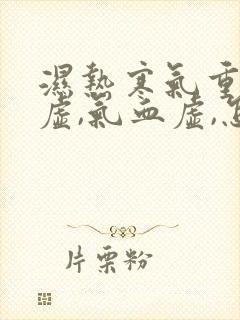 濕熱寒氣重
虛,氣血虛,怎
片栗粉